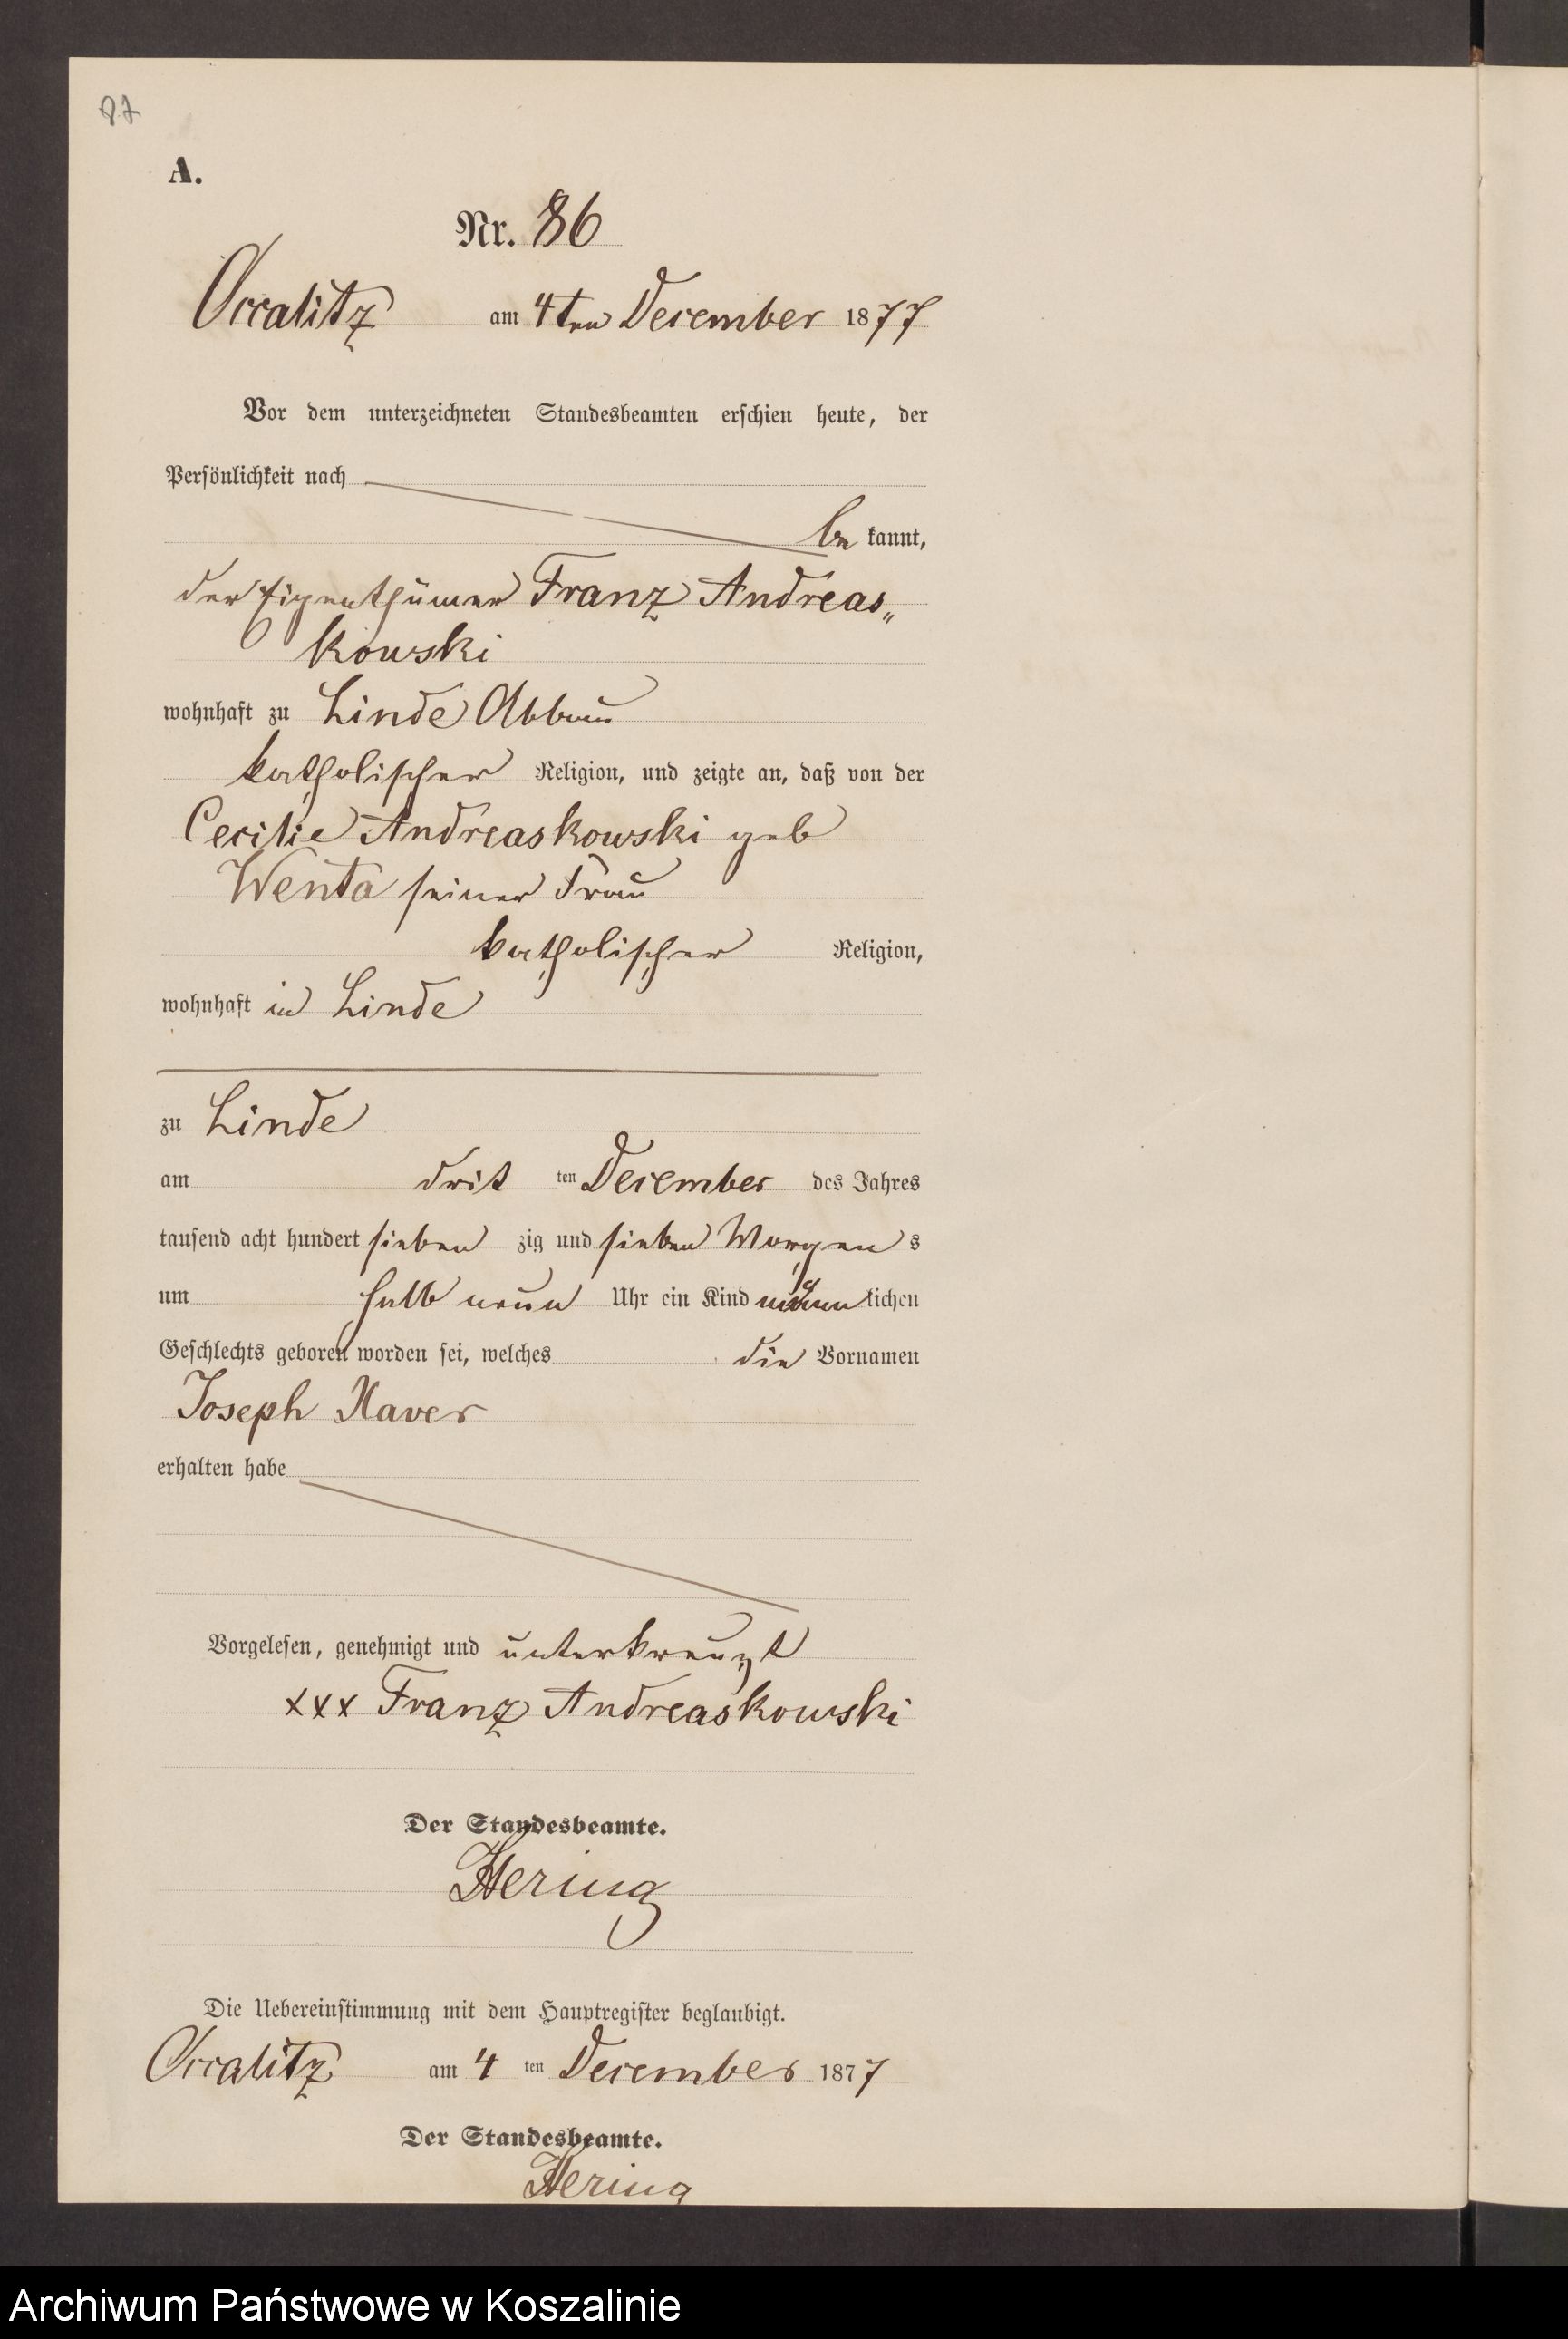 87
A.
Nr. 86
Occalitz am 4ten December 1877
Vor dem unterzeichneten Standesbeamten erschien heute, der
Persönlichkeit nach
be kannt,
der Eigenthümer Franz Andreas„
kowski
wohnhaft zu Linde Abbau
katholischer Religion, und zeigte an, daß von der
Cecilie Andreaskowski geb
Wenta seiner Frau
katholischer Religion,
wohnhaft in Linde
zu Linde
am drit ten December des Jahres
tausend acht hundert sieben zig und sieben Morgen s
um halb neun Uhr ein Kind männ lichen
Geschlechts geboren worden sei, welches die Vornamen
Joseph Xaver
erhalten habe
Vorgelesen, genehmigt und unterkreuzt
xxx Franz Andreaskowski
Der Standesbeamte.
Hering
Die Uebereinstimmung mit dem Hauptregister beglaubigt.
Occalitz am 4 ten December 1877
Der Standesbeamte.
Hering
Archiwum Państwowe w Koszalinie